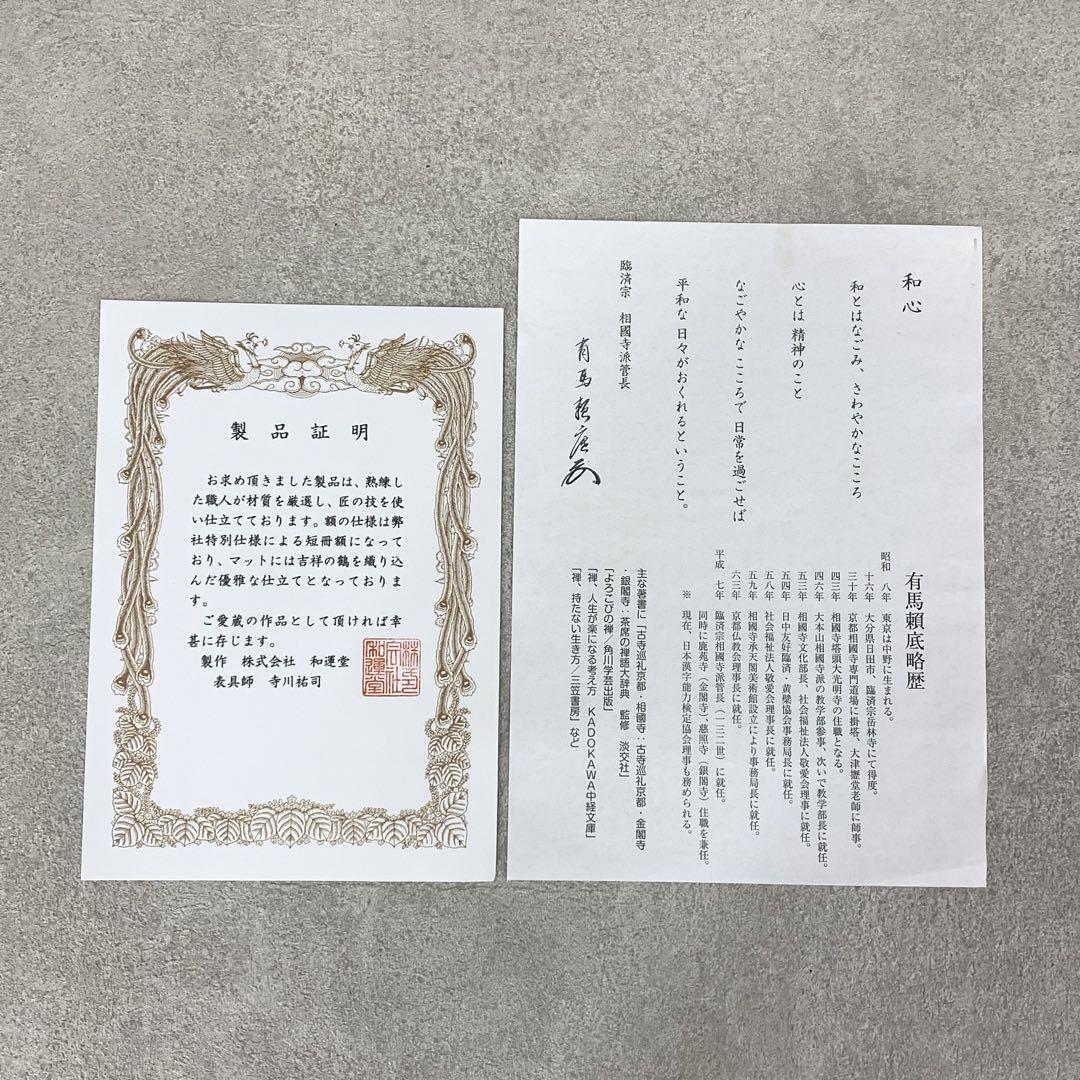 製品証明
お求め頂きました製品は、熟練し
た職人が材質を厳選し、匠の技を使
い仕立てております。額の仕様は弊
社特別仕様による短冊額になって
おり、マットには吉祥の鶴を織り込
んだ優雅な仕立てとなっておりま
す。
ご愛蔵の作品として頂ければ幸
甚に存じます。
製作 株式会社 和運堂
表具師 寺川祐司
和心
和とはなごみ、さわやかなこころ
心とは 精神のこと
なごやかな こころで 日常を過ごせば
平和な 日々がおくれるということ。
臨済宗 相國寺派管長
有馬頼底
有馬頼底略歴
昭和 八年 東京は中野に生まれる。
十六年 大分県日田市、臨済宗岳林寺にて得度。
三十年 京都相國寺専門道場に掛塔、大津櫪堂老師に師事。
四三年 相國寺塔頭大光明寺の住職となる。
四六年 大本山相國寺派の教学部参事、次いで教学部長に就任。
五三年 相國寺文化部長、社会福祉法人敬愛会理事に就任。
五四年 日中友好臨済・黄檗協会事務局長に就任。
五八年 社会福祉法人敬愛会理事長に就任。
五九年 相國寺承天閣美術館設立により事務局長に就任。
六三年 京都仏教会理事長に就任。
平成 七年 臨済宗相國寺派管長（一三二世）に就任。
同時に鹿苑寺（金閣寺）、慈照寺（銀閣寺）住職を兼任。
※ 現在、日本漢字能力検定協会理事も務められる。
主な著書に「古寺巡礼京都・相國寺：古寺巡礼京都・金閣寺
・銀閣寺：茶席の禅語大辞典 監修 淡交社」
「よろこびの禅／角川学芸出版」
「禅、人生が楽になる考え方 KADOKAWA中経文庫」
「禅、持たない生き方／三笠書房」など